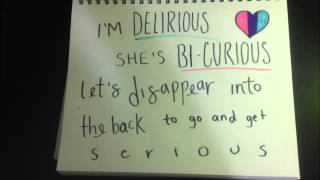 I'M DELIRIOUS
SHE'S BI-CURIOUS
Let's disappear into
the back to go and get
serious